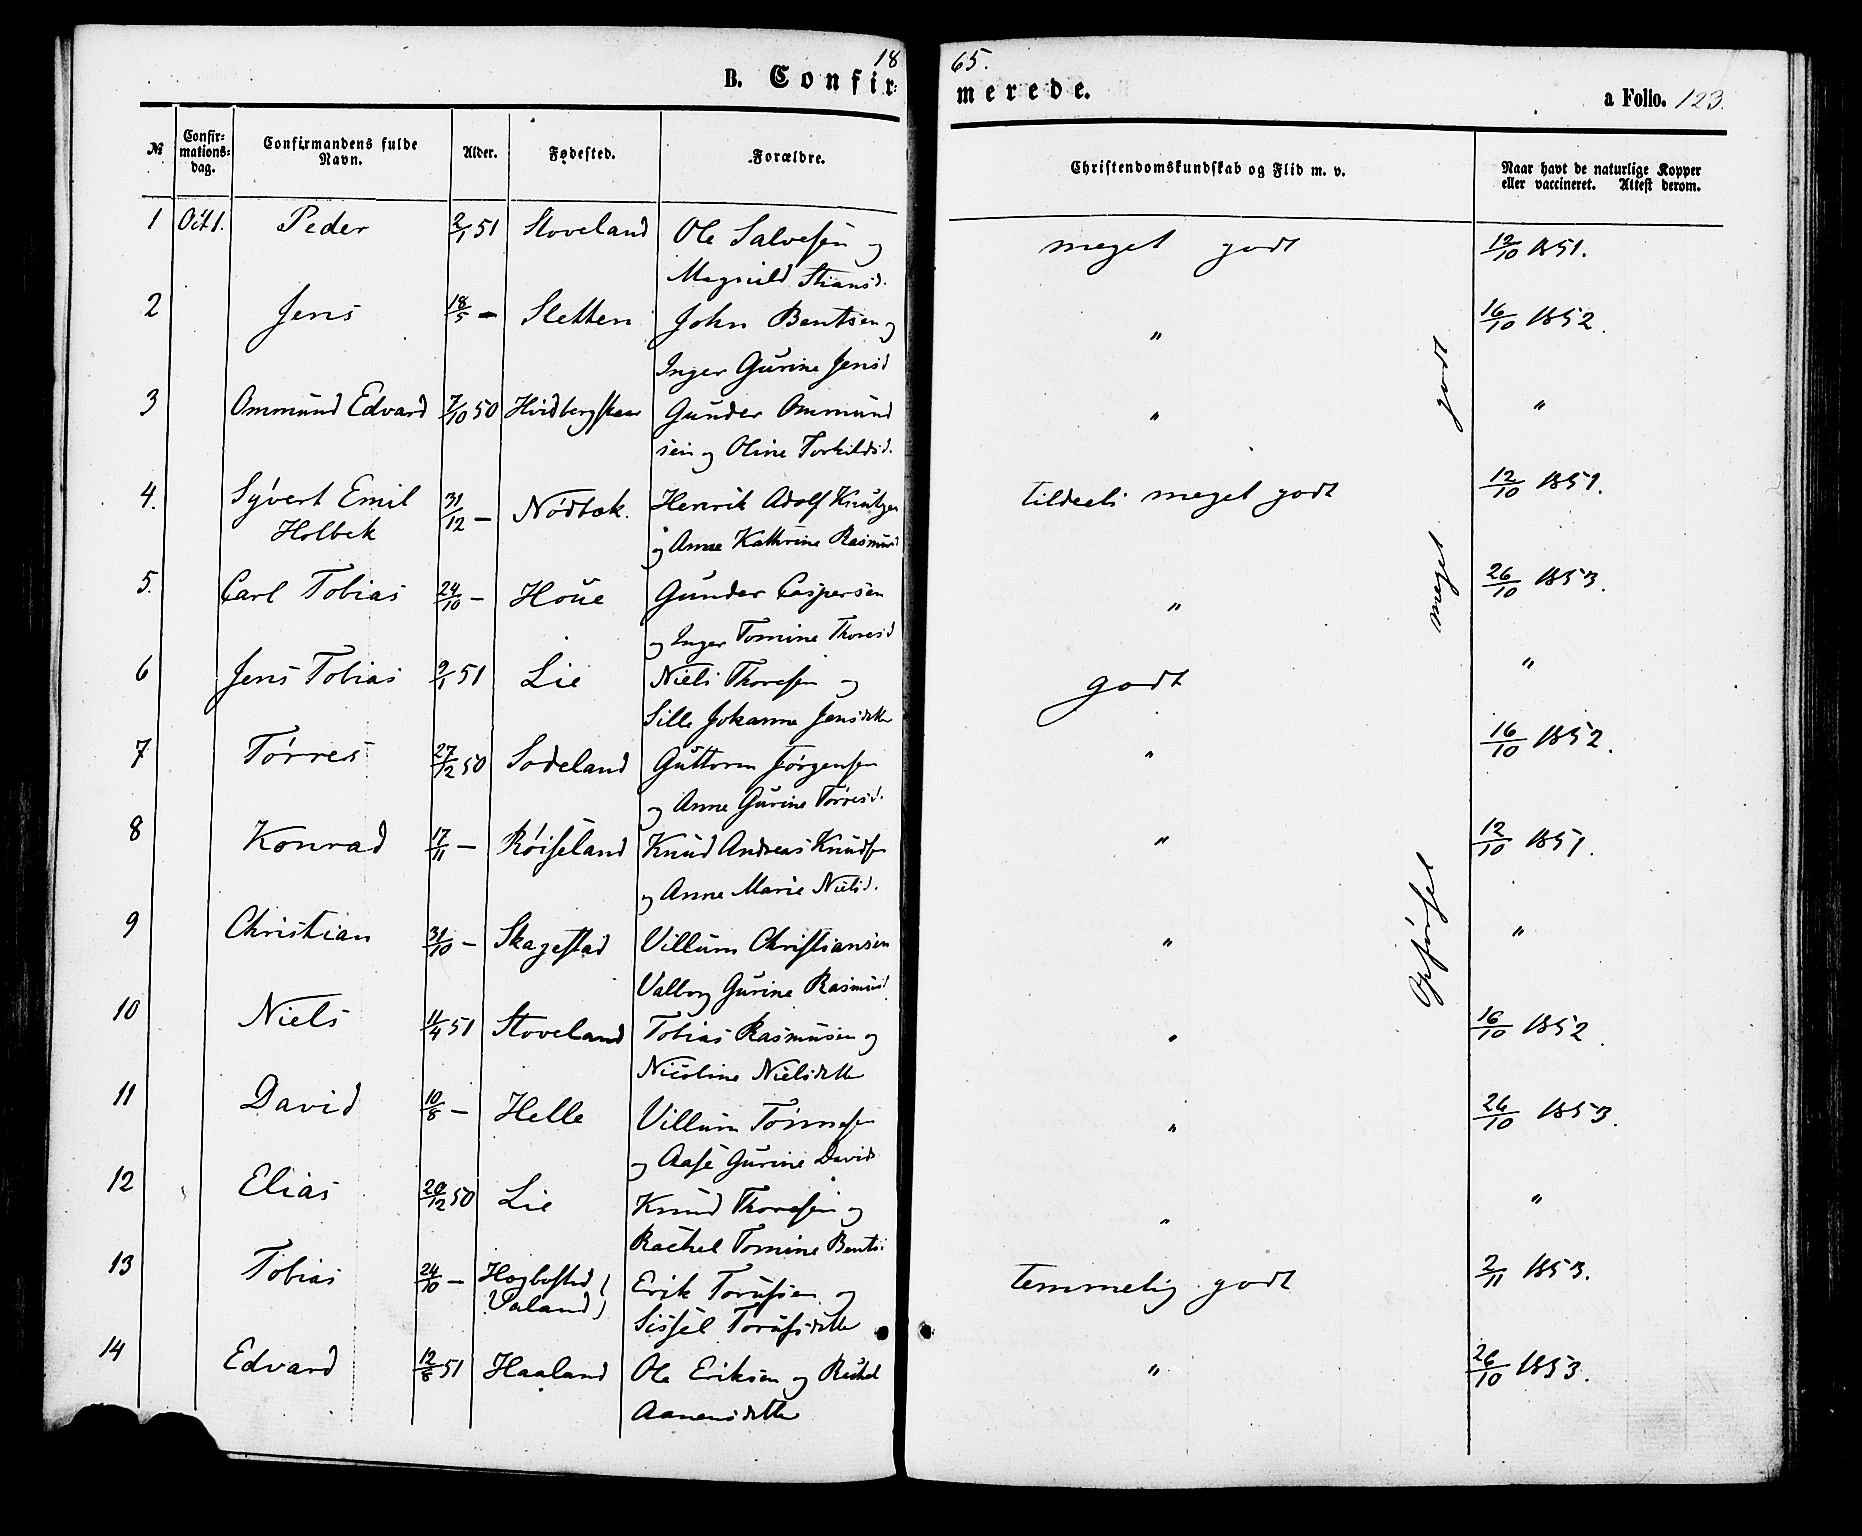 1865.
B. Confirmerede.
a Folio. 123.
№ Confirmationsdag. Confirmandens fulde Navn. Alder. Fødested. Forældre. Christendomskundskab og Flid m. v. Naar havt de naturlige Kopper eller vaccineret. Attest derom.
1 Oct 1. Peder 2/1 51 Stoveland Ole Salvesen og meget godt 12/10 1851.
2 Jens 18/5 — Sletten John Bentsen og " 16/10 1852.
Inger Gurine Jensd
3 Ommund Edvard 7/10 50 Hvidbergskaar Gunder Ommund " "
sen og Oline Torkildsd.
4. Syvert Emil 31/12 — Nødbæk. Henrik Adolf Knutzen tildeels meget godt 12/10 1851.
Holbek og Anne Kathrine Rasmusd
5. Carl Tobias 24/10 — Houe Gunder Caspersen " 26/10 1853.
og Inger Tomine Thoresd
6 Jens Tobias 9/1 51 Lie Niels Thoresen og godt "
Sille Johanne Jensdtter
7 Tørres 27/12 50 Sodeland Guttorm Jørgensen " 16/10 1852.
og Anne Gurine Tørresd.
8 Konrad 17/11 — Røiseland Knud Andreas Knudsen " 12/10 1851.
og Anne Marie Nielsd.
9 Christian 31/10 — Skagestad Villum Christiansen " "
Valborg Gurine Rasmusd
10 Niels 11/4 51 Stoveland Tobias Rasmusen og " 16/10 1852.
Nicoline Nielsdatter
11 David 10/8 — Helle Villum " 26/10 1853.
og Aase Gurine Davids
12 Elias 20/12 50 Lie Knud Thoresen og " "
Rachel Tomine Bents.
13 Tobias 24/10 — Høgbosted ( Erik Torufsen og temmelig godt 2/11 1853.
Valand) Sissel Torufsdatter
14 Edvard 12/8 51 Haaland Ole Eriksen og Rachel " 26/10 1853.
Aanensdatter
meget godt
Opførsel